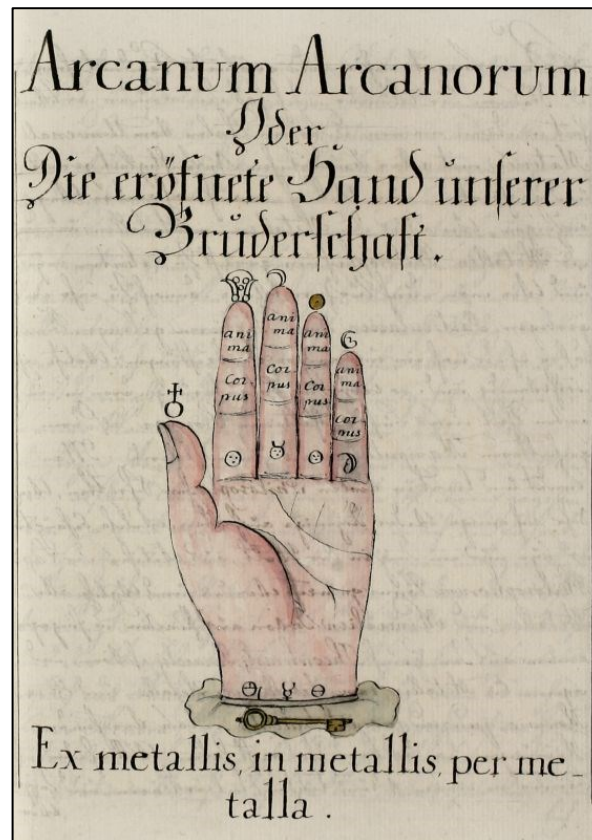 Arcanum Arcanorum
Oder
Die eröfnete Hand unserer
Bruderschaft.
ani
ma
ani
ma
ani
ma
ani
ma
Cor
pus
Cor.
pus
Cor
pus
Cor
pus
Ex metallis, in metallis, per me_
talla.